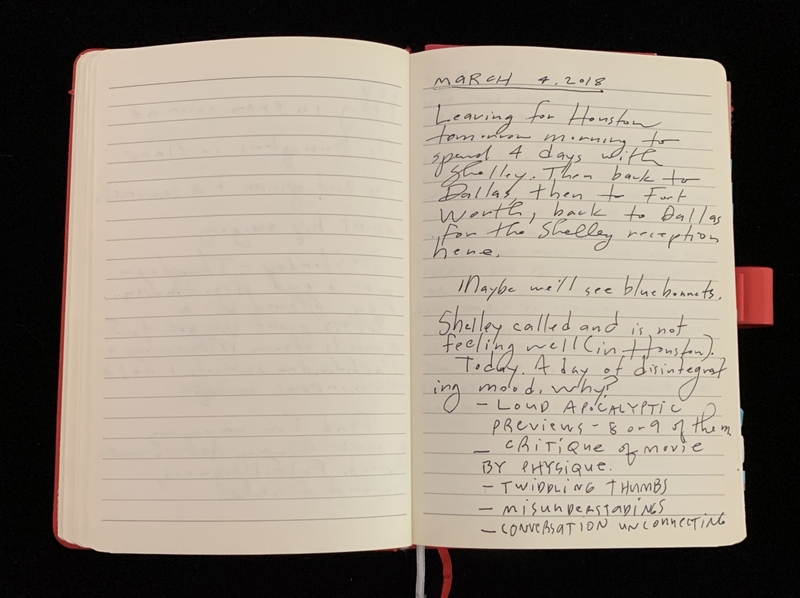 MARCH 4, 2018
Leaving for Houston
tomorrow morning to
spend 4 days with
Shelley. Then back to
Dallas, then to Fort
Worth, back to Dallas
for the Shelley reception
here.
Maybe we'll see bluebonnets.
Shelley called and is not
feeling well (in Houston).
Today. A day of disintegrat
ing mood. Why?
- LOUD APOCALYPTIC
PREVIEWS - 8 or 9 of them
- CRITIQUE of MOVIE
BY PHYSIQUE.
- TWIDDLING THUMBS
- MISUNDERSTADINGS
- CONVERSATION UNCONNECTING